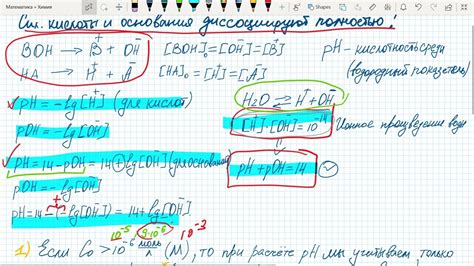 Математика + Химия
Сил. кислоты и основания диссоциируют полностью!
BOH → B⁺ + OH⁻ [BOH]₀=[OH⁻]=[B⁺] pH - кислотность среды
HA → H⁺ + A⁻ [HA]₀=[H⁺]=[A⁻] (водородный показатель)
pH = -lg[H⁺] (для кислот) H₂O ⇄ H⁺ + OH⁻
pOH = -lg[OH⁻] [H⁺]·[OH⁻]=10⁻¹⁴ Ионное произведение воды
pH = 14 - pOH = 14 + lg[OH⁻] (для оснований) pH + pOH = 14
pOH = -lg[OH⁻]
pH = 14 - (-lg[OH⁻]) = 14 + lg[OH⁻]
10⁻⁵ 9·10⁻⁶ 10⁻³
1) Если C₀ > 10⁻⁶ моль/л (M), то при расчёте pH мы учитываем только